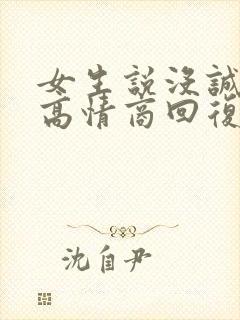 女生説没誠
高情商回復
沈自尹